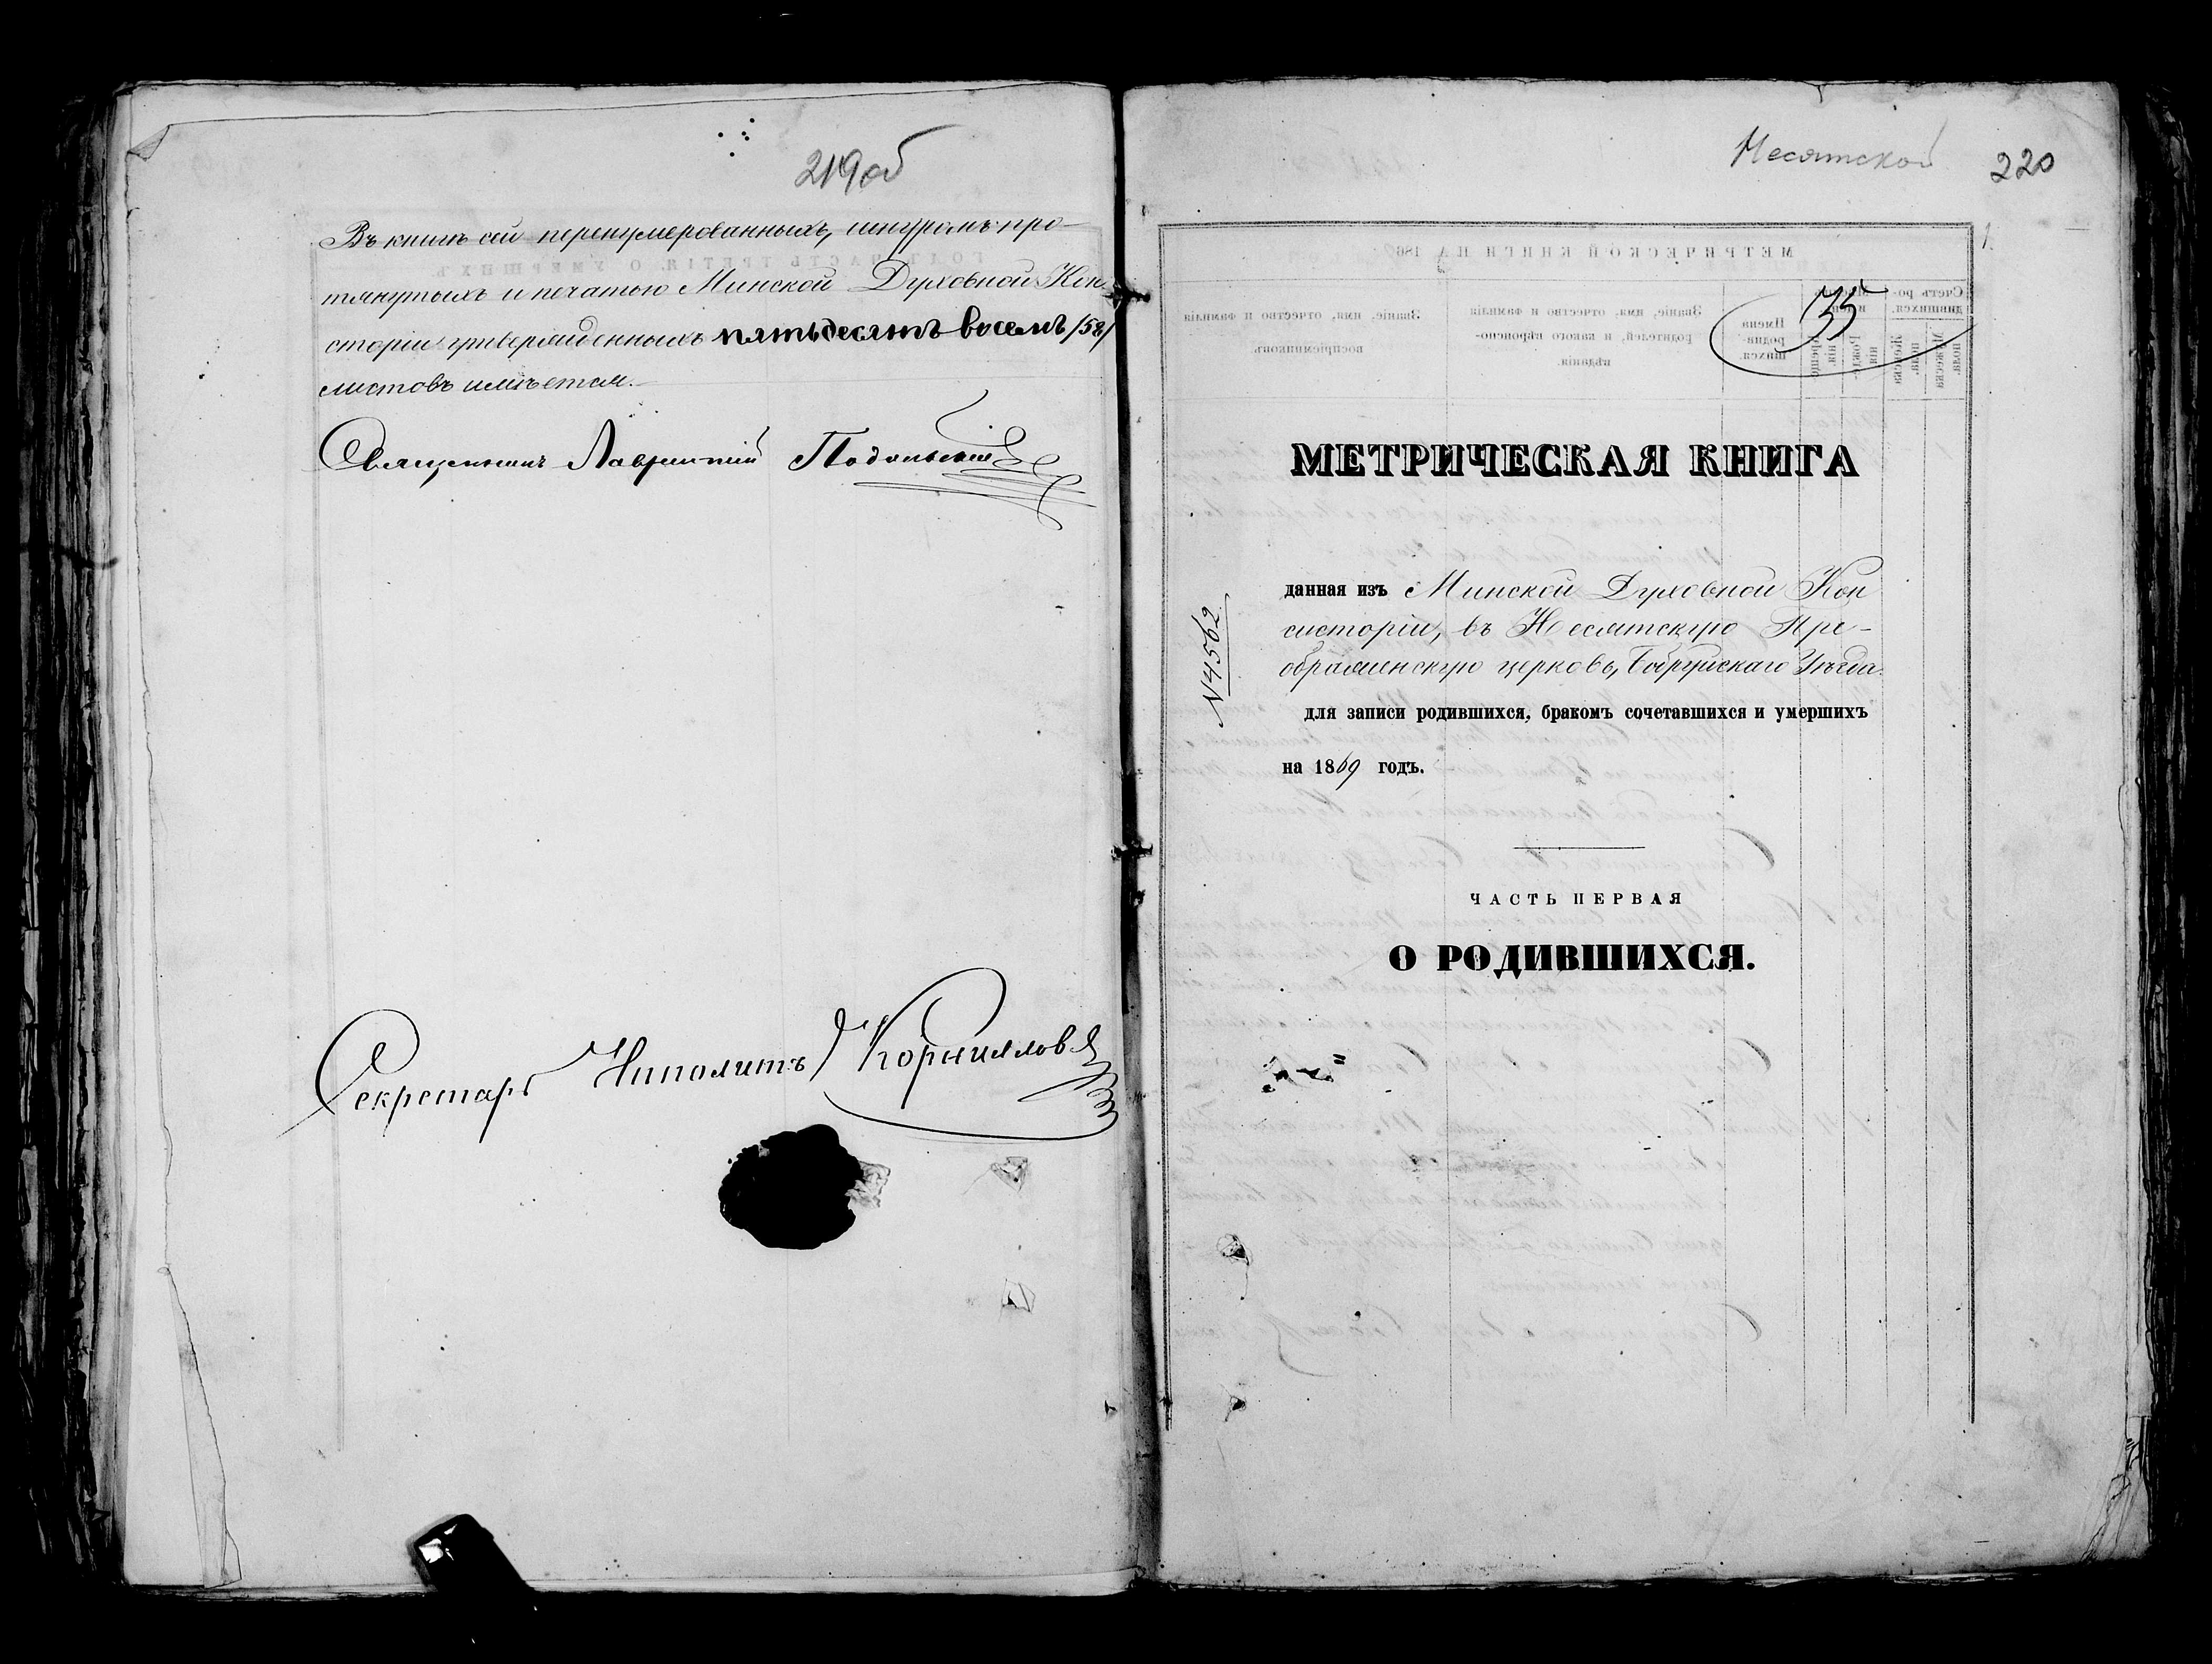 219об
Въ книгѣ сей перенумерованныхъ, шнуромъ про-
тянутыхъ и печатью Минской Духовной Кон
сторіи утвержденныхъ пятьдесятъ восемь /58/
листовъ имѣется.
Священникъ Лаврентій Подольскій
Секретарь Иполитъ Корнилловъ
Несятской 220
1.
35
МЕТРИЧЕСКАЯ КНИГА
№4562
данная изъ Минской Духовной Кон
систоріи, въ Несятскую Пре-
ображенскую церковь, Бобруйскаго Уѣзда.
для записи родившихся, бракомъ сочетавшихся и умершихъ
на 1869 годъ.
ЧАСТЬ ПЕРВАЯ
О РОДИВШИХСЯ.